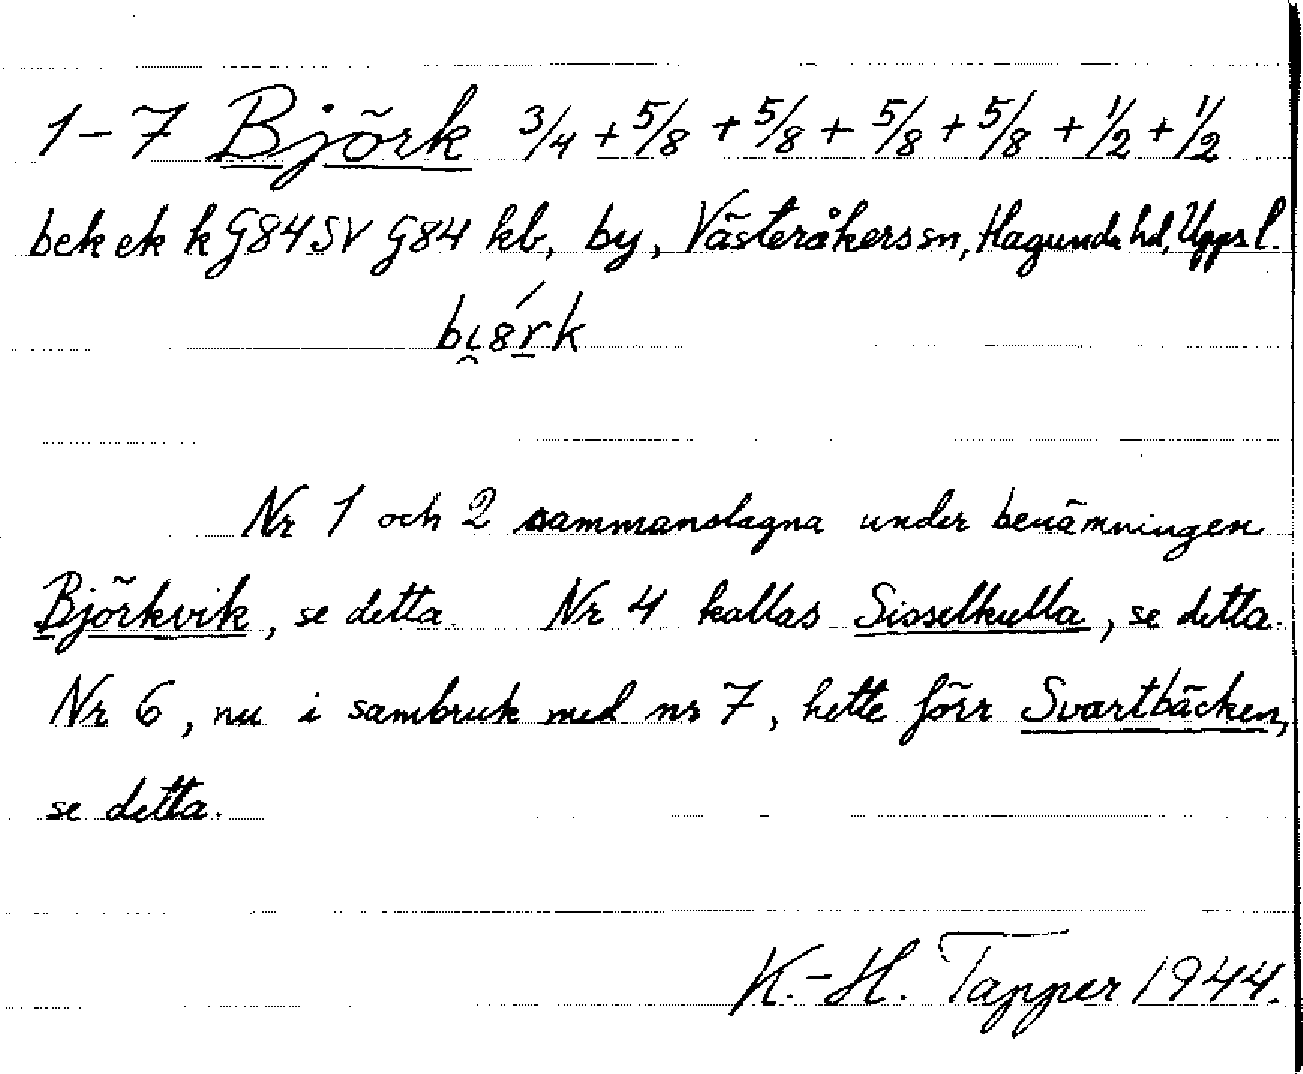 1-7 Björk 3/4 + 5/8 + 5/8 + 5/8 + 5/8 + 1/2 + 1/2
bek ek k G84SV G84 kb, by, Västeråkers sn, Hagunda hd, Upps l.
bi̯8ŕ̠k
Nr 1 och 2 sammanslagna under benämningen
Björkvik, se detta. Nr 4 kallas Sisselkulla, se detta.
Nr 6, nu i sambruk med nr 7, hette förr Svartbäcken,
se detta.
K.-H. Tapper 1944.